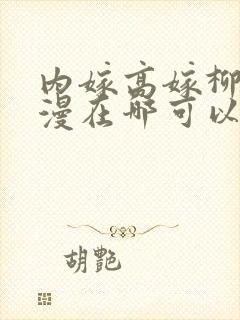 内嫁高嫁柳
漫在哪可以
胡艷